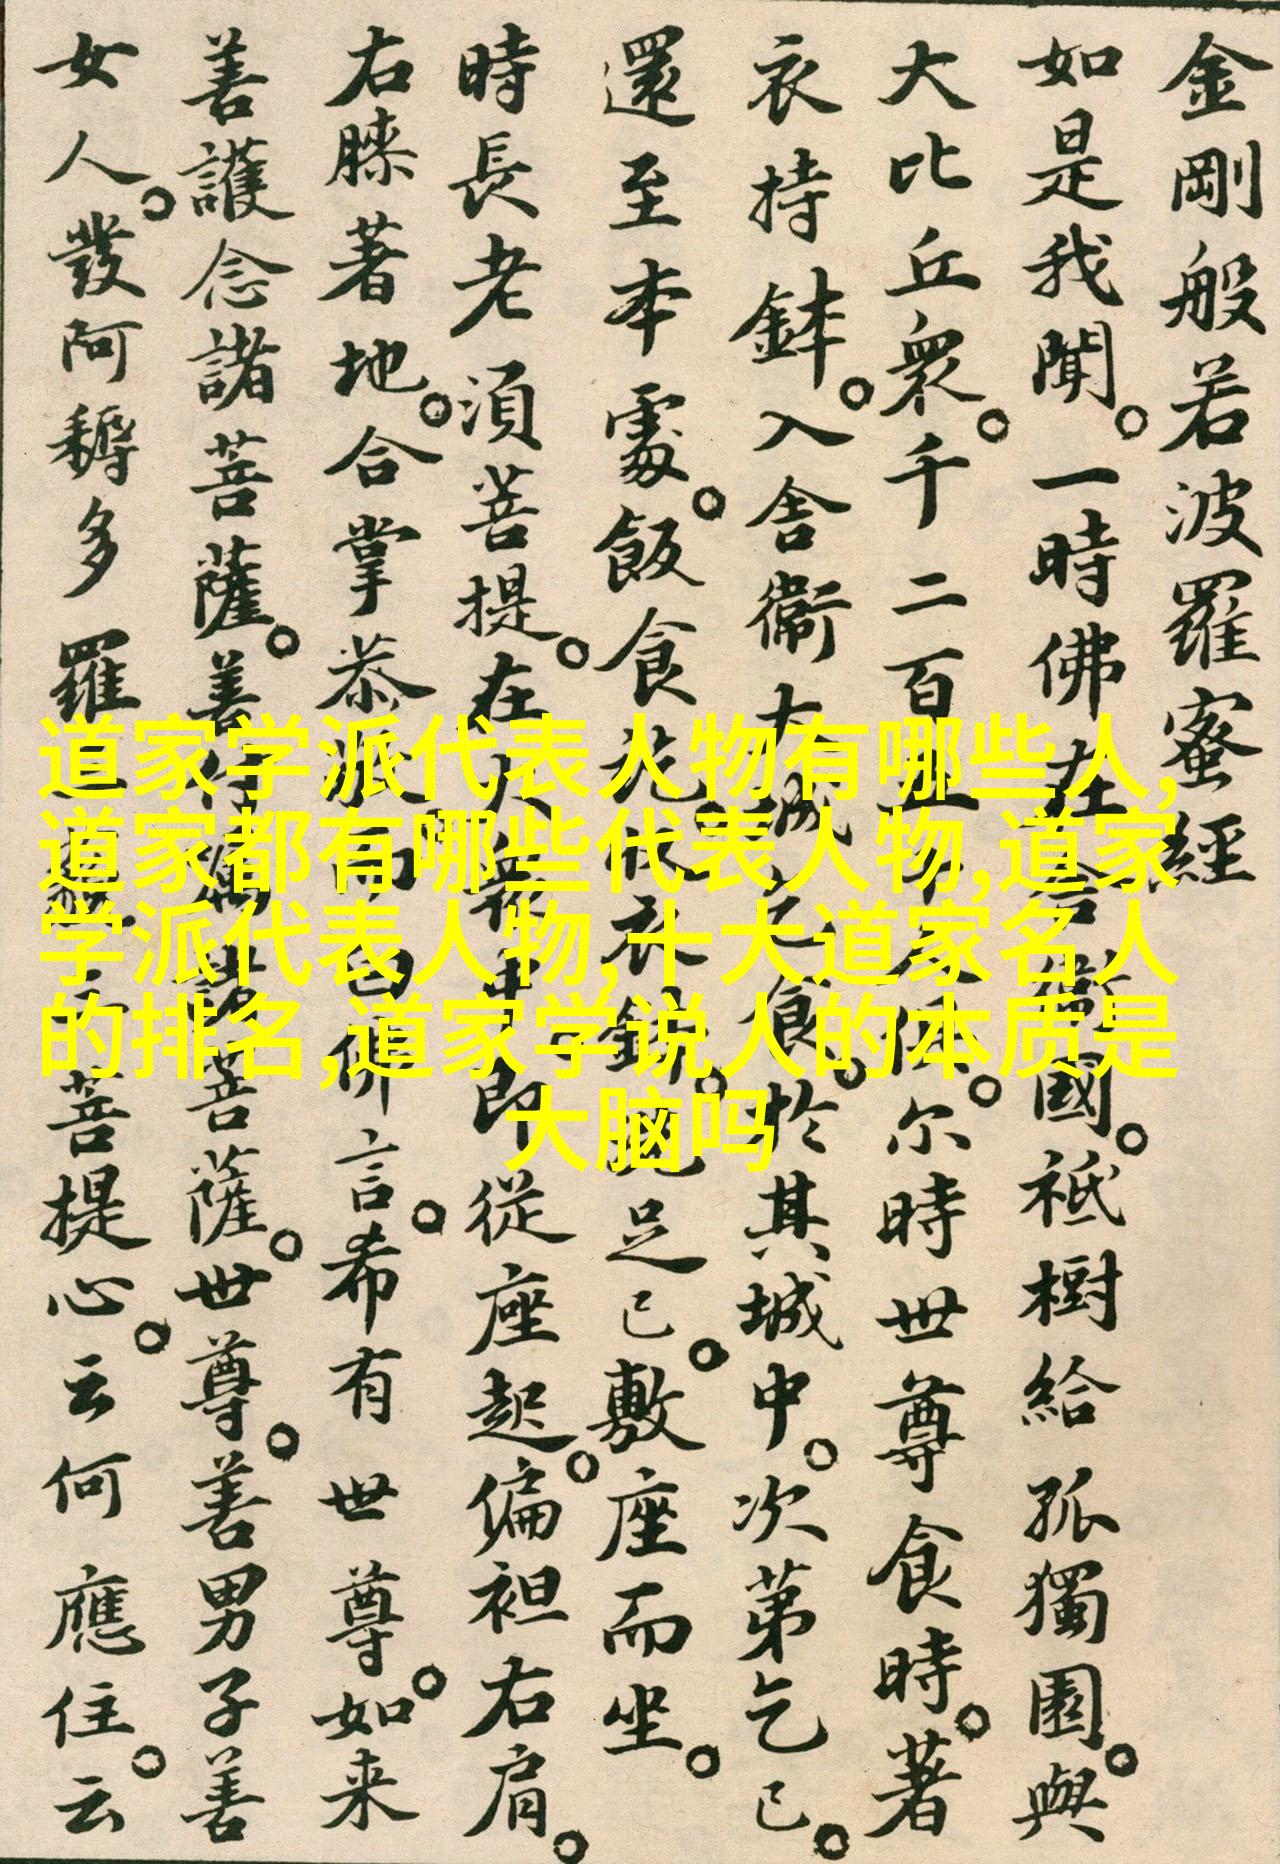 金剛般若波羅蜜經
如是我聞。一時佛在舍衛國。祇樹給孤獨園。與
大比丘衆。千二百五十人俱。尔時世尊食時。著
衣持鉢。入舍衛大城乞食。於其城中。次第乞已。
還至本處。飯食訖收衣鉢。洗足已。敷座而坐。
時長老須菩提。在大衆中即從座起。偏袒右肩。
右膝著地。合掌恭敬。而白佛言。希有世尊。如来
善護念諸菩薩。善付囑諸菩薩。世尊。善男子善
女人。發阿耨多羅三藐三菩提心。云何應住。云
道家学派代表人物有哪些人,
道家都有哪些代表人物,道家
学派代表人物,十大道家名人
的排名,道家学说人的本质是
大脑吗